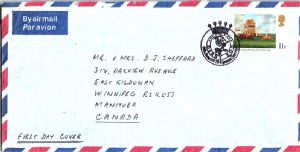 By air mail
Par avion
11P
MR. & MRS. D.J. SHEPPARD
312, OAKVIEW AVENUE
EAST KILDONAN,
WINNIPEG R2K0S3
MANITOBA
CANADA
FIRST DAY COVER